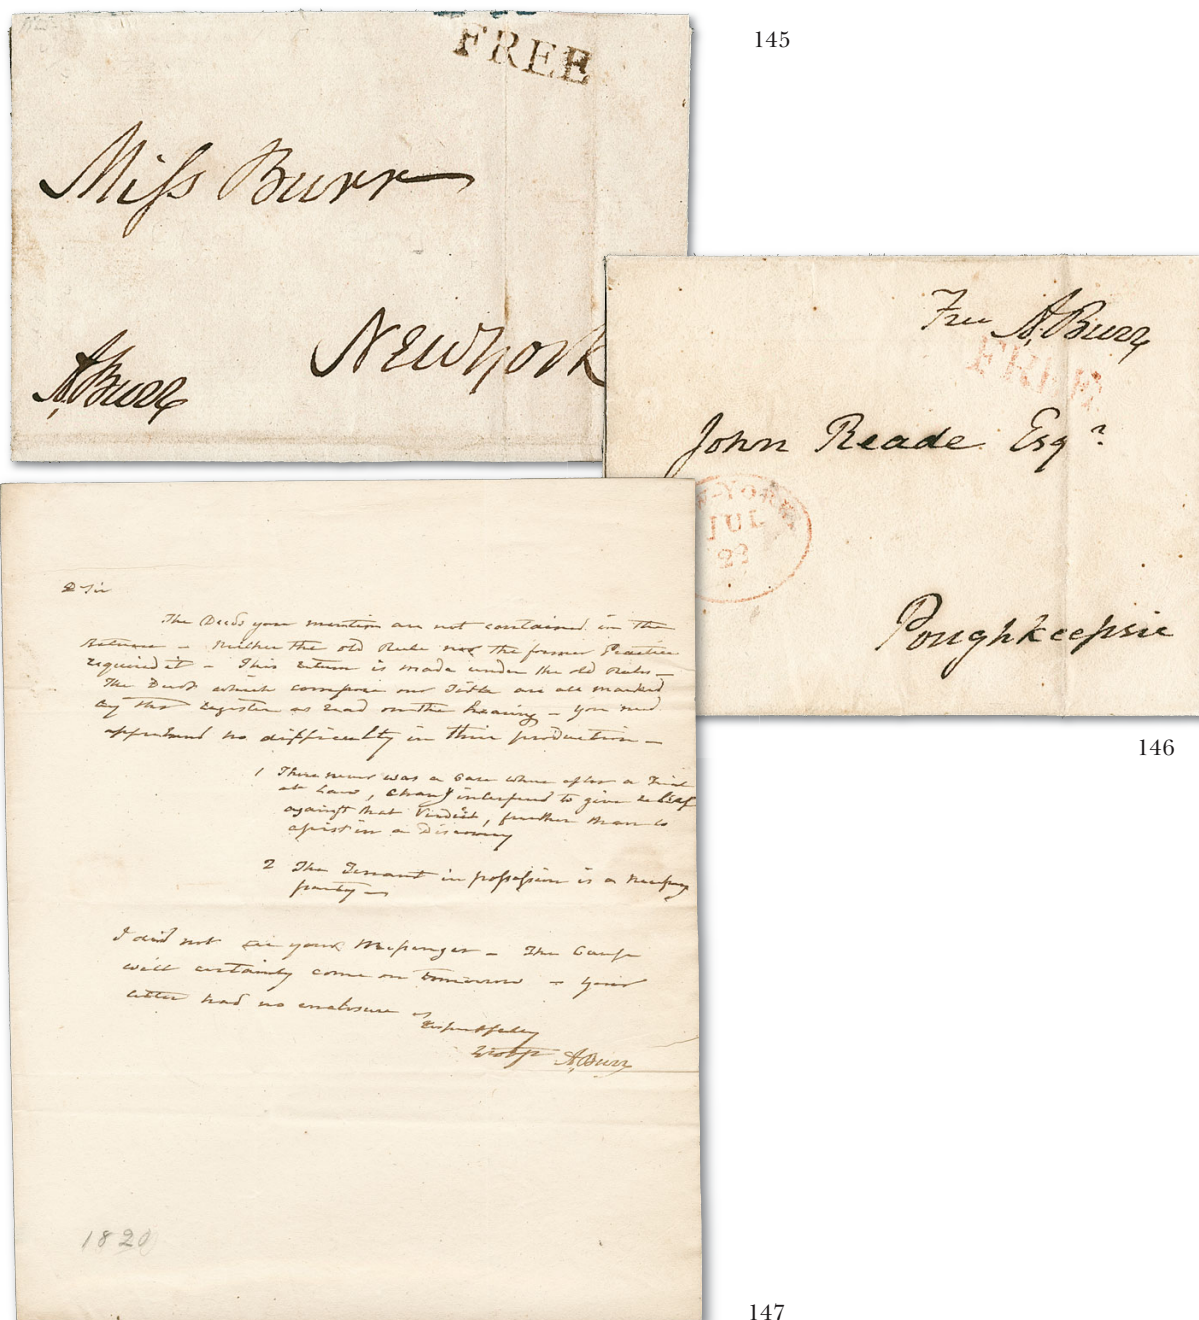 145
FREE
Miss Burr
New York
A. Burr
Free A. Burr
FREE
John Reade Esqr
W-YORK
JUL
23
Poughkeepsie
146
D Sir
The Deeds you mention are not contained in the
Return – Neither the old Rule nor the former Practice
required it – This return is made under the old Rules –
The Deeds which compose our Title are all marked
by the Register as read on the hearing – you need
apprehend no difficulty in their production –
1 There never was a Case where after a Trial
at Law, Chany interfered to give relief
against that Verdict, further than to
assist in a Discovery
2 The Tenant in possession is a necessary
party –
I did not see your Messenger – The Cause
will certainly come on tomorrow – your
letter had no enclosure
respectfully
A. Burr
1820
147